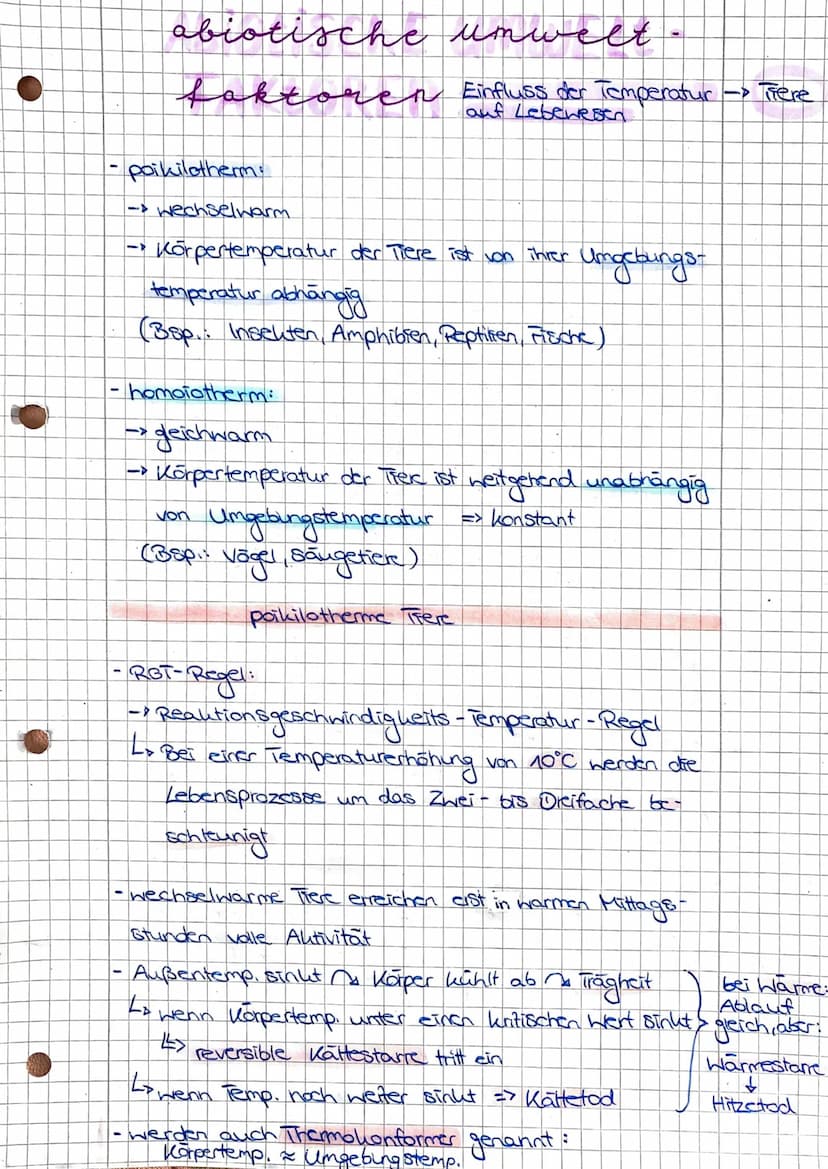 abiotische umwelt-
faktoren Einfluss der Temperatur -> Tiere
auf Lebewesen
- poikilotherm:
-> wechselwarm
-> Körpertemperatur der Tiere ist von ihrer Umgebungs-
temperatur abhängig
(Bsp.: Insekten, Amphibien, Reptilien, Fische)
- homoiotherm:
-> gleichwarm
-> Körpertemperatur der Tiere ist weitgehend unabhängig
von Umgebungstemperatur => konstant
(Bsp.: Vögel, Säugetiere)
poikilotherme Tiere
- RGT-Regel:
-> Reaktionsgeschwindigkeits-Temperatur-Regel
↳ Bei einer Temperaturerhöhung von 10°C werden die
Lebensprozesse um das Zwei- bis Dreifache be-
schleunigt
- wechselwarme Tiere erreichen erst in warmen Mittags-
stunden volle Aktivität
- Außentemp. sinkt ↝ Körper kühlt ab ↝ Trägheit
↳ wenn Körpertemp. unter einen kritischen Wert sinkt
↳> reversible Kältestarre tritt ein
↳ wenn Temp. noch weiter sinkt => Kältetod
bei Wärme:
Ablauf
gleich, aber:
Wärmestarre
↓
Hitzetod
- werden auch Thermokonformer genannt:
Körpertemp. ≈ Umgebungstemp.